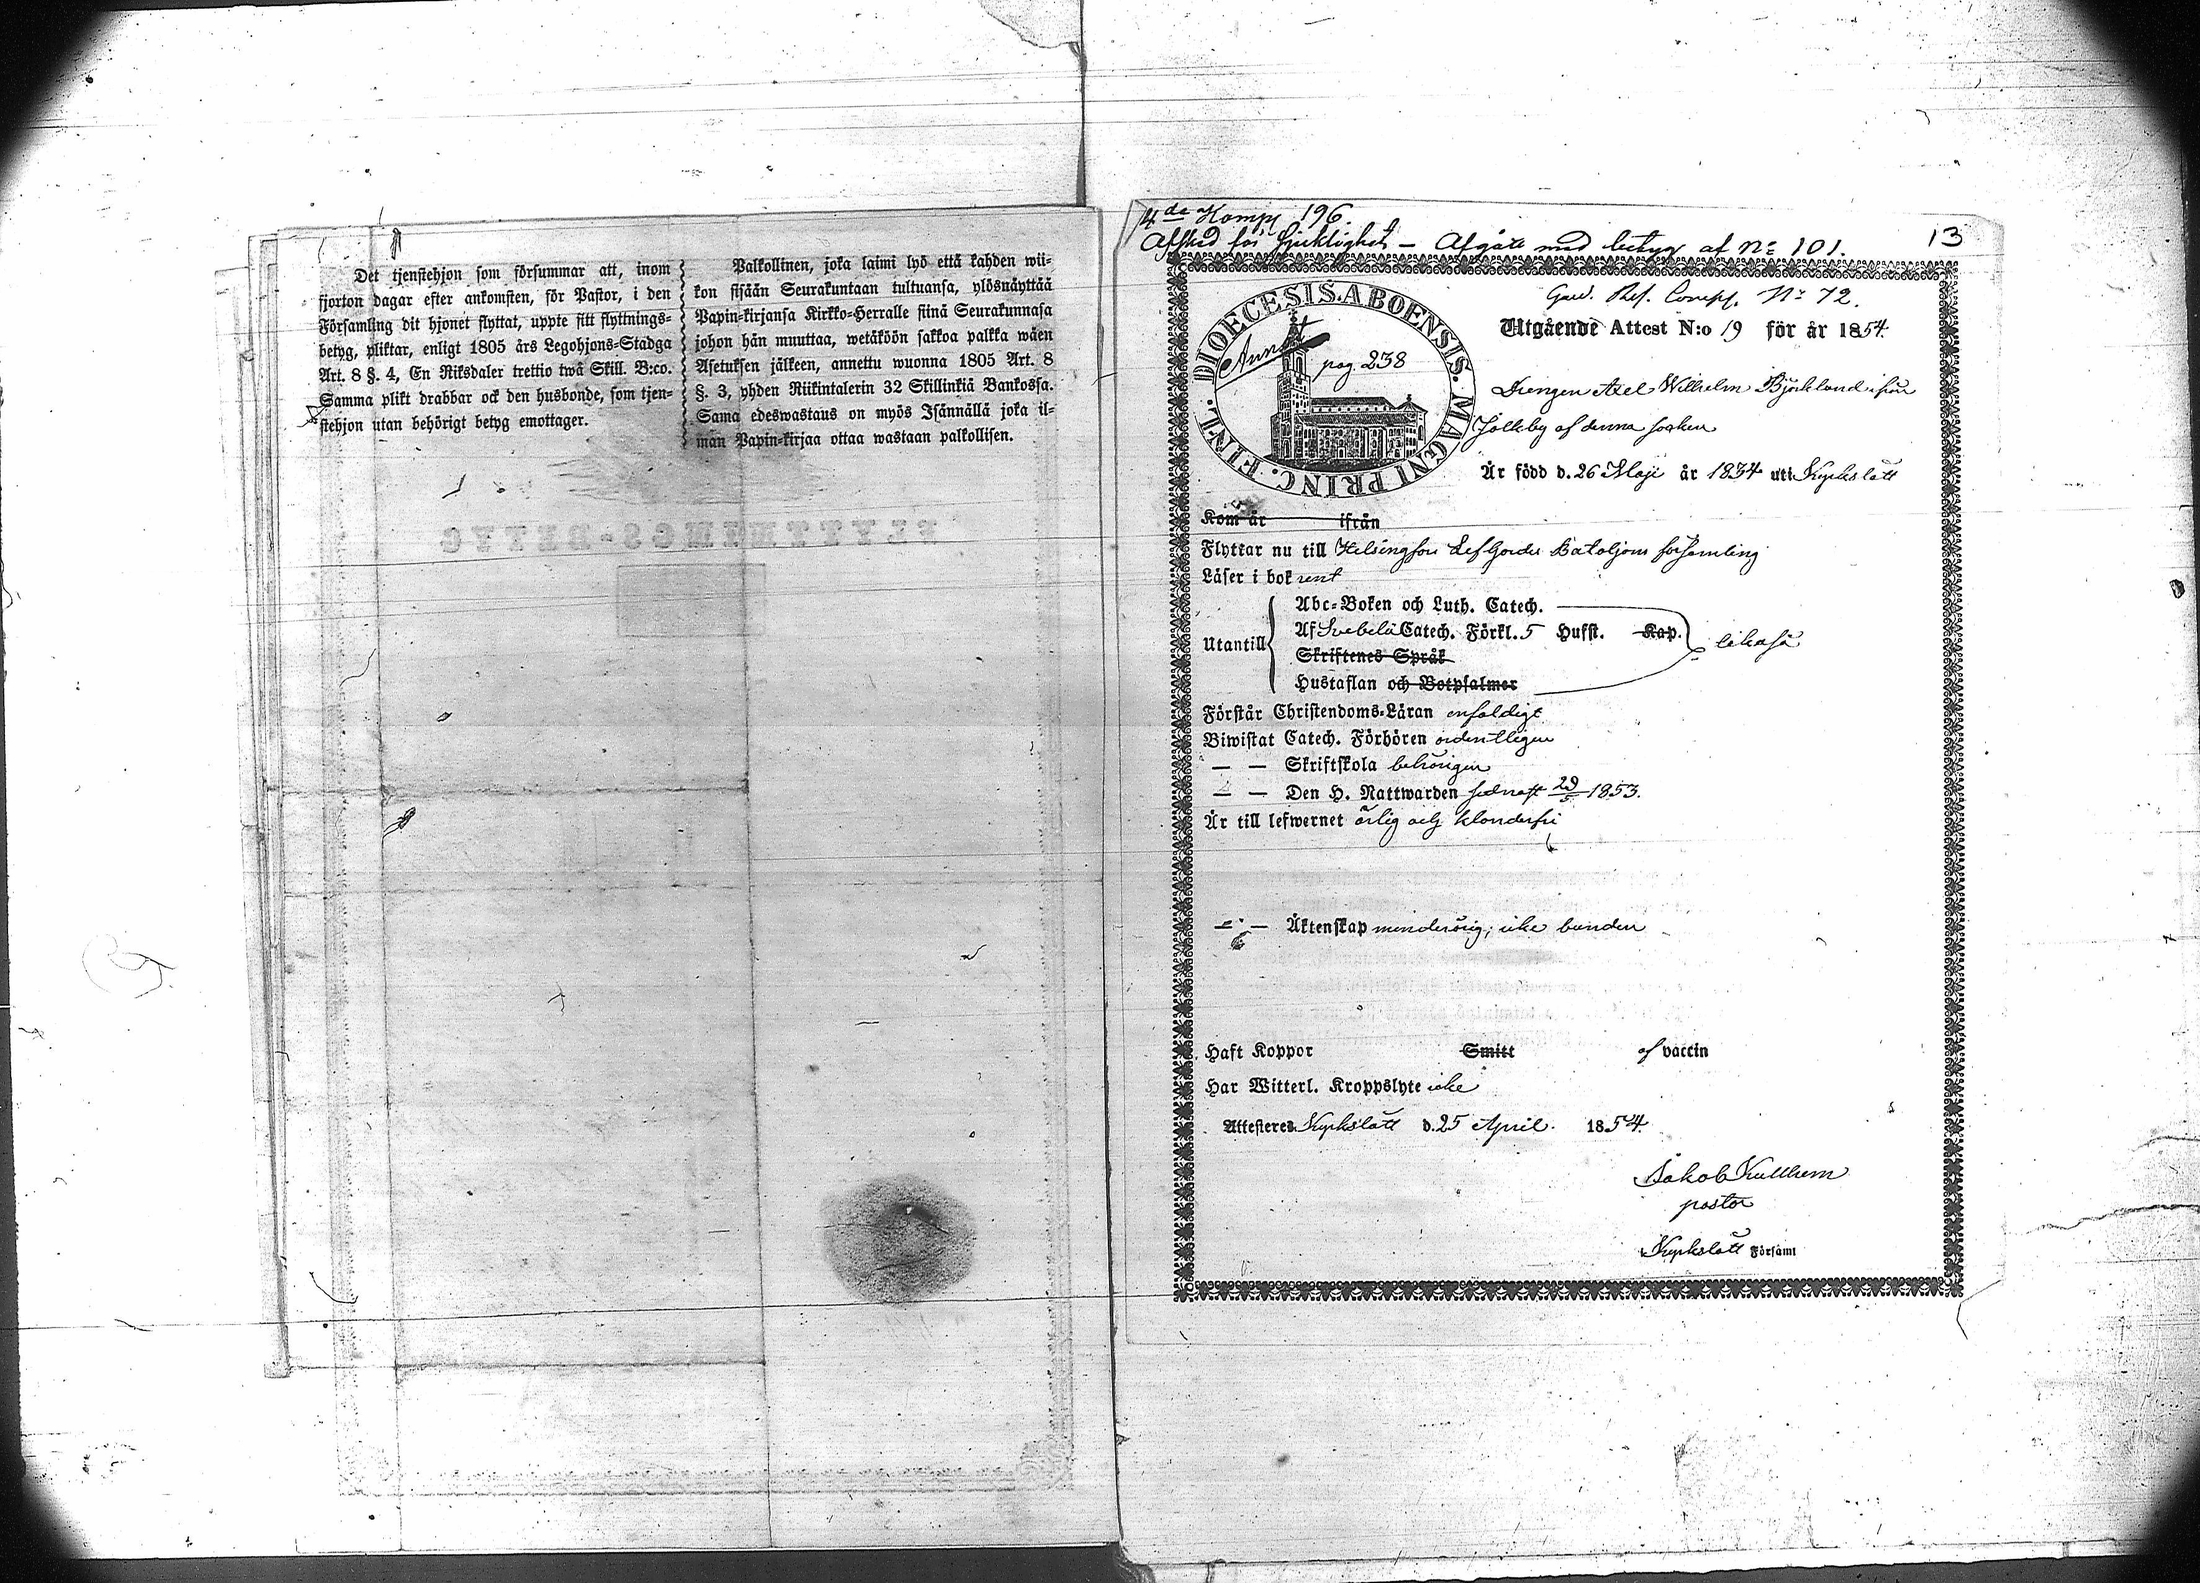 Det tjenstehjon som försummar att, inom
fjorton dagar efter ankomsten, för Pastor, i den
Församling dit hjonet flyttat, uppte sitt flyttnings=
betyg, pliktar, enligt 1805 års Legohjons=Stadga
Art. 8 §. 4, En Riksdaler trettio twå Skill. B:co.
Samma plikt drabbar ock den husbonde, som tjen=
stehjon utan behörigt betyg emottager.
Palkollinen, joka laimi lyö että kahden wii=
kon sisään Seurakuntaan tultuansa, ylösnäyttää
Papin=kirjansa Kirkko=Herralle siinä Seurakunnasa
johon hän muuttaa, wetäköön sakkoa palkka wäen
Asetuksen jälkeen, annettu wuonna 1805 Art. 8
§. 3, yhden Riikintalerin 32 Skillinkiä Bankossa.
Sama edeswastaus on myös Isännällä joka il=
man Papin=kirjaa ottaa wastaan palkollisen.
4de Komp 196.
Afsked för sjuklighet – Afgått med betyg af No 101.
13
DIOECESIS. ABOENSIS. MAGNI PRINC. FINL.
pag. 238
Komp. No 72.
Utgående Attest N:o 19 för år 1854.
Drengen Axel Wilhelm Björklund ifrån
Jolkby af denna socken
Är född d. 26 Maji år 1834 uti Kyrkslätt
Kom år ifrån
Flyttar nu till Helsingfors Lif Gardes Bataljons församling
Läser i bok rent
Utantill
Abc=Boken och Luth. Catech.
Af Svebelii Catech. Förkl. 5 Hufst. Kap.
Skriftenes Språk
Hustaflan och Botpsalmer
likaså
Förstår Christendoms=Läran enfaldigt
Biwistat Catech. Förhören ordentligen
— — Skriftskola behörigen
— — Den H. Nattwarden sednast 29/5 1853.
Är till lefwernet ärlig och klanderfri
— — Äktenskap minderårig, icke bunden
Haft Koppor Smitt af vaccin
Har Witterl. Kroppslyte icke
Attesteres Kyrkslätt d. 25 April. 1854.
Jakob Kullhem
pastor
Kyrkslätt Församl